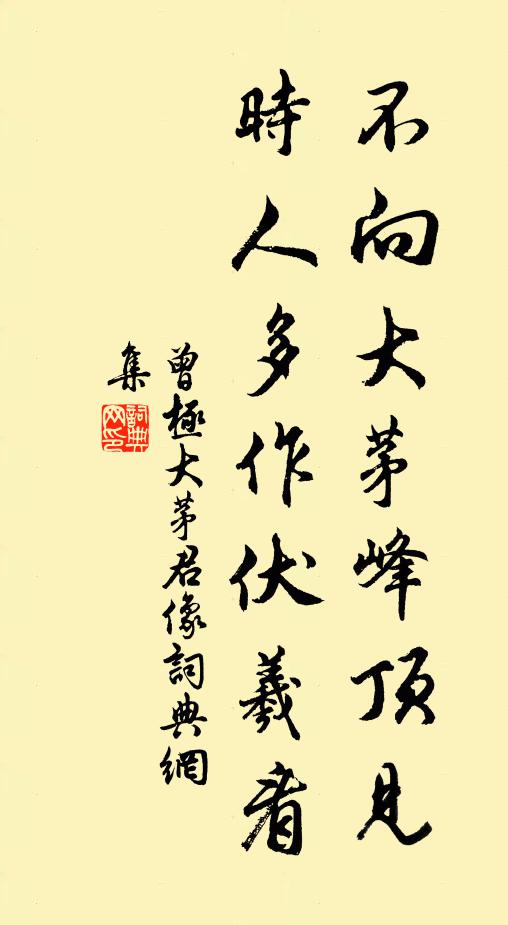 不向大茅峰頂見
時人多作伏羲看
曾極大茅君像詞典網
集
詞典網印